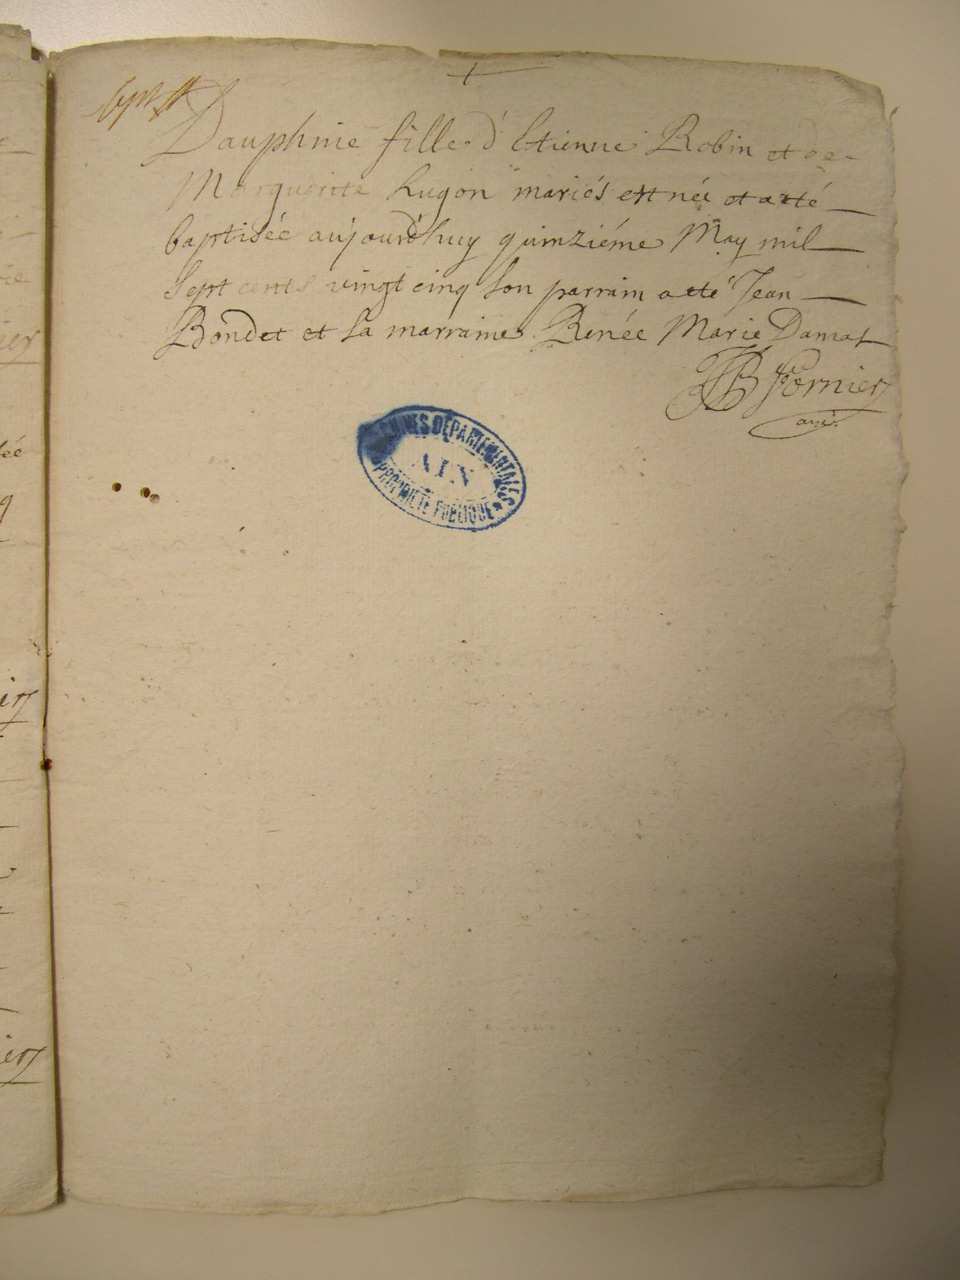 bpt
Dauphnie fille d'Etienne Robin et de
Marguerite hugon mariés est née et a eté
baptisée aujourd'huy quinziéme May mil
Sept cents vingt cinq son parrain a eté Jean
Bondet et sa marraine Renée Marie Damas
JB Fornier
curé
ARCHIVES DÉPARTEMENTALES
AIN
PROPRIÉTÉ PUBLIQUE